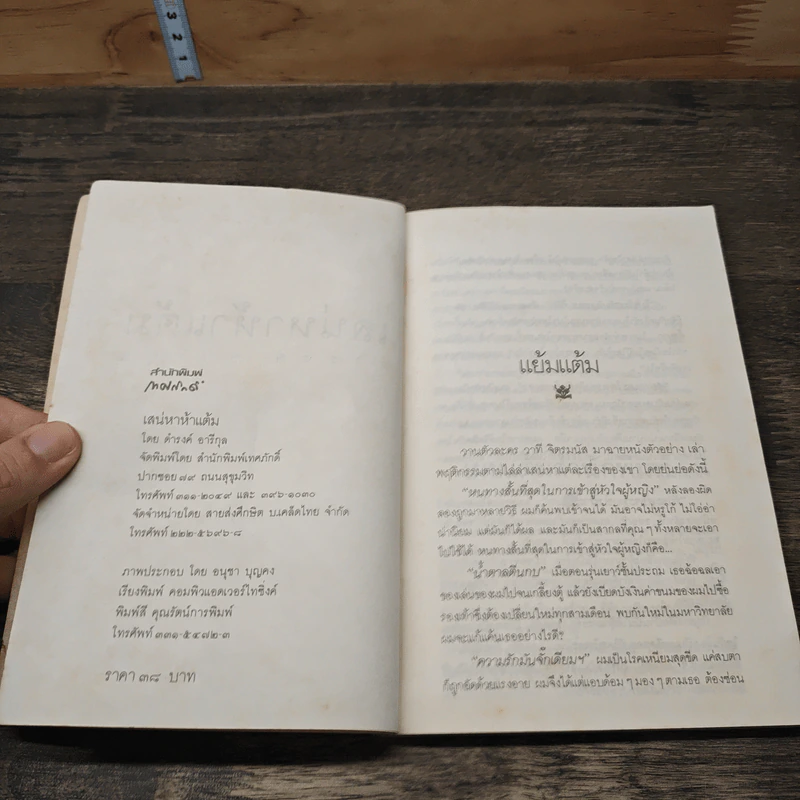 3
2
1
สำนักพิมพ์
เสน่หาห้าแต้ม
โดย ดำรงค์ อารีกุล
จัดพิมพ์โดย สำนักพิมพ์เทศภักดิ์
ปากซอย ๗๙ ถนนสุขุมวิท
โทรศัพท์ ๓๑๑-๒๐๔๙ และ ๓๙๖-๑๐๓๐
จัดจำหน่ายโดย สายส่งศึกษิต บ.เคล็ดไทย จำกัด
โทรศัพท์ ๒๒๒-๕๖๙๖-๘
ภาพประกอบ โดย อนุชา บุญคง
เรียงพิมพ์ คอมพิวแอดเวอร์ไทซิงค์
พิมพ์ที่ คุณรัตน์การพิมพ์
โทรศัพท์ ๓๓๑-๕๔๗๒-๓
ราคา ๓๘ บาท
แย้มแต้ม
วานตัวละคร วาที จิตรมนัส มาฉายหนังตัวอย่าง เล่า
พฤติกรรมตามไล่ล่าเสน่หาแต่ละเรื่องของเขา โดยย่นย่อดังนี้
"หนทางสั้นที่สุดในการเข้าสู่หัวใจผู้หญิง" หลังลองผิด
ลองถูกมาหลายวิธี ผมก็ค้นพบเข้าจนได้ มันอาจไม่หรูโก้ ไม่โอ่อ่า
น่านิยม แต่มันก็ได้ผล และมันก็เป็นสากลที่คุณ ๆ ทั้งหลายจะเอา
ไปใช้ได้ หนทางสั้นที่สุดในการเข้าสู่หัวใจผู้หญิงก็คือ...
"น้ำตาลตีนกบ" เมื่อตอนรุ่นเยาว์ชั้นประถม เธอฉ้อฉลเอา
ของเล่นของผมไปจนเกลี้ยงตู้ แล้วยังเบียดบังเงินค่าขนมของผมไปซื้อ
รองเท้าซึ่งต้องเปลี่ยนใหม่ทุกสามเดือน พบกันใหม่ในมหาวิทยาลัย
ผมจะแก้แค้นเธออย่างไรดี?
"ความรักมันจั๊กเดียมฯ" ผมเป็นโรคเหนียมสุดขีด แค่สบตา
ก็ถูกอัดด้วยแรงอาย ผมจึงได้แต่แอบด้อม ๆ มอง ๆ ตามเธอ ต้องซ่อน